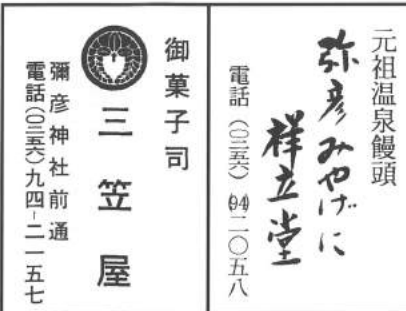 元祖温泉饅頭
弥彦みやげに
祥立堂
電話（〇二五六）94二〇五八
御菓子司
三笠屋
彌彦神社前通
電話（〇二五六）九四-二一五七